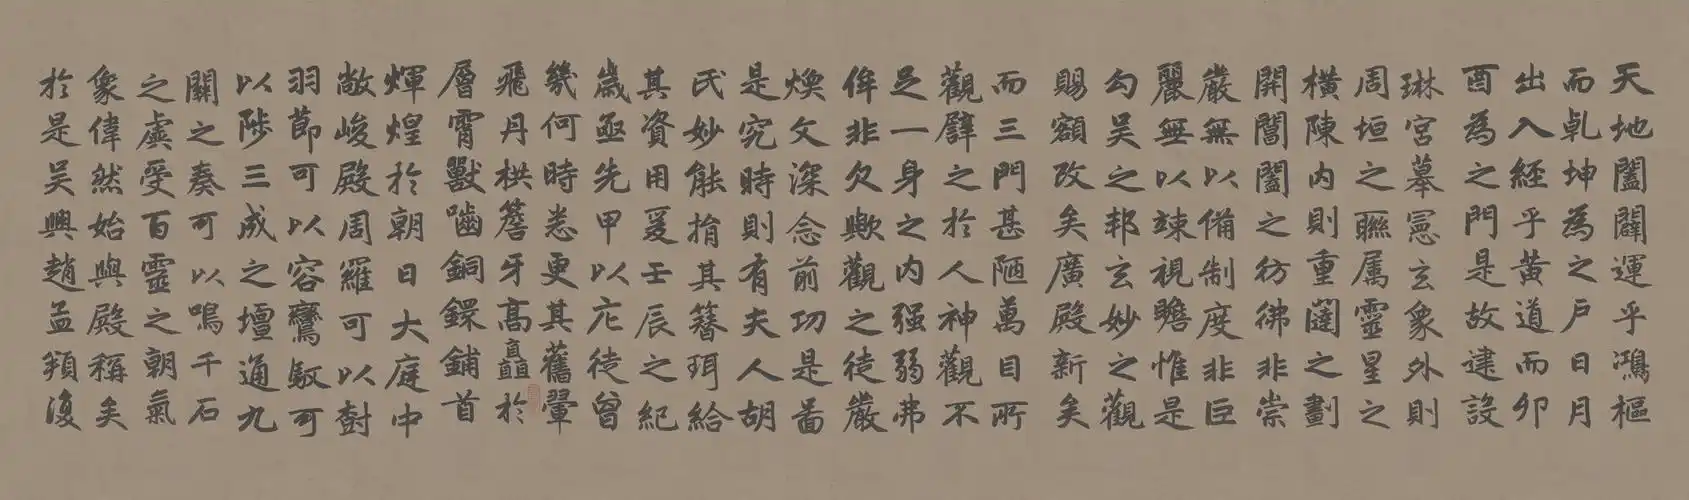 天地闔闢運乎鴻樞
而乹坤為之户日月
出入經乎黄道而卯
酉為之門是故建設
琳宮摹憲玄象外則
周垣之聮属靈星之
横陳内則重闥之劃
開閶闔之彷彿非崇
嚴無以備制度非巨
麗無以竦視瞻惟是
勾吴之邦玄妙之觀
賜額改矣廣殿新矣
而三門甚陋萬目所
觀辟之於人神觀不
足一身之内强弱弗
侔非欠歟觀之徒嚴
煥文深念前功是啚
是究時則有夫人胡
氏妙能捐其簪珥給
其資用爰壬辰之紀
歳亟先甲以庀徒曾
幾何時悉更其舊翬
飛丹栱簷牙髙矗於
層霄獸嚙銅鐶鋪首
煇煌於朝日大庭中
敞峻殿周羅可以樹
羽節可以容鸞馭可
以陟三成之壇通九
關之奏可以鳴千石
之虡受百靈之朝氣
象偉然始與殿稱矣
於是吴興趙孟頫復